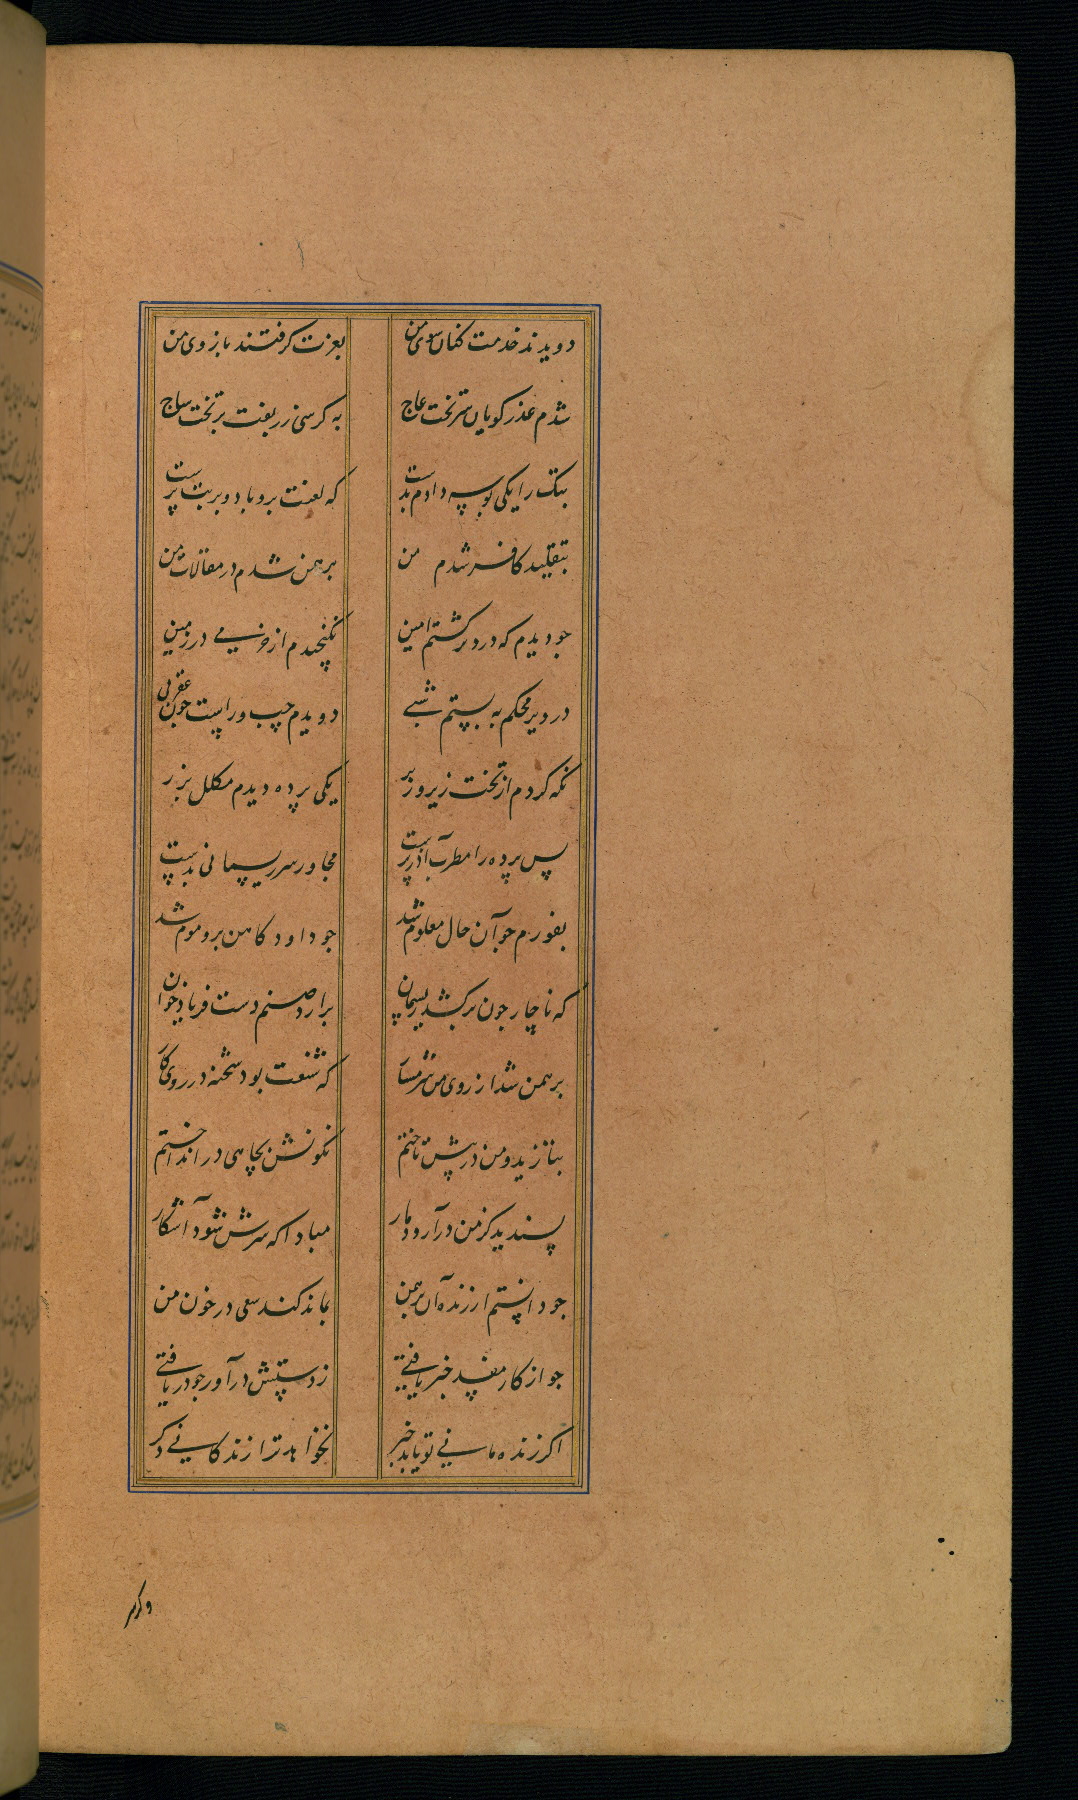 دویدند خدمت کنان سوی من بعزت کرفتند بازوی من
شدم عذر کویان بر تخت عاج به کرسی زربفت بر تخت ساج
بتک را یکی بوسه دادم بدست که لعنت برو باد و بر بت پرست
بتقلید کافر شدم من برهمن شدم در مقالات من
جو دیدم که در دیر کشتم امین نکنجیدم از خرمی در زمین
در دیر محکم به بستم شبی دویدم چپ و راست جون عقربی
نکه کردم از تخت زیر و زبر یکی پرده دیدم مکلل بزر
پس پرده را مطرآن آذرپرست مجاور سر ریسمانی بدست
بفورم جو آن حال معلوم شد جو داود کاهن برو موم شد
که ناچار جون برکشد ریسمان برارد صنم دست فریاد خوان
برهمن شد از روی من شرمسار که شنعت بود بخیه در روی کار
بتازید و من در پیش تاختم نکونش بچاهی در انداختم
پسندید کز من درآرد دمار مبادا که سرش شود آشکار
جو دانستم ار زنده آن برهمن بماند کند سعی در خون من
جو از کار مفسد خبر یافتی ز دستش درآور جو دریافتی
اکر زنده مانی تو یابد خبر نخواهد ترا زندکانی دکر
وکر سر